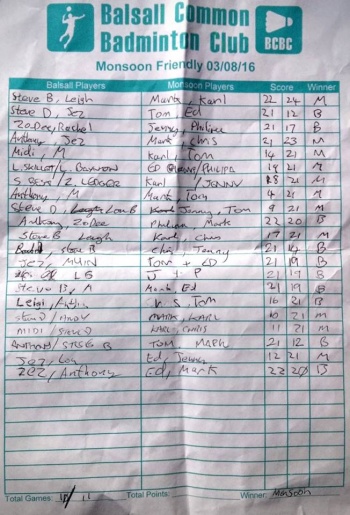 Balsall Common
Badminton Club
BCBC
Monsoon Friendly 03/08/16
Balsall Players Monsoon Players Score Winner
Steve B, Leigh Mark, Karl 22 24 M
Steve D, Sez Tom, Ed 21 12 B
ZoDee, Rachel Jenny, Philipa 21 17 B
Anthony, Jez Mark, Chris 21 23 M
Midi, M Karl, Tom 14 21 M
ED Philipa 19 21 M
S BENN/Z LEDGER Karl / JENNY 18 21 M
Anthony, M Mark, Tom 4 21 M
Steve D, Lou B Jenny, Tom 9 21 M
Anthony, ZoDee Philipa, Mark 22 20 B
Steve B Leigh Karl, Chris 17 21 M
Steve B Chris, Jenny 21 14 B
JEZ, Tom + ED 21 19 B
LB J + P 21 17 B
Steve B, A Mark, Ed 21 19 B
Leigh, Tom 16 21 B
MARK, KARL 10 21 M
MIDI / STEVE D KARL, CHRIS 11 21 M
ANTHONY / STEVE B TOM, MARK 21 12 B
Jez, Lou Ed, Jenny 12 21 M
Jez, Anthony Ed, Mark 22 20 B
Total Games: 11 Total Points: Winner: Monsoon